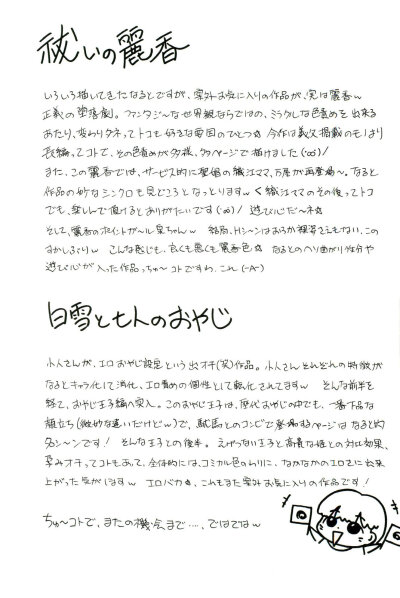 祓いの麗香
いろいろ描いてきたなるとですが、案外お気に入りの作品が、実は麗香w
正義の堕落劇。ファンタジ〜な世界観ならではの、ミラクルな色責めを出来る
あたり、変わりダネってトコも好きな要因のひとつ☆ 今作は義父掲載のモノより
長編ってコトで、その色責めが多様、多ページで描けました(・∞・)!
また、この麗香では、サービス的に聖倡の織江ママ、万屋が再登場〜。なると
作品の妙なシンクロも見どころとなっとりますw く織江ママのその後ってトコ
でも、楽しんで頂けるとありがたいです(・∞・)! 遊び心だ〜ネ☆
そして、麗香のポイントガ〜ル 泉ちゃんw 結局、Hシ〜ンはおろか裸華さえもない、この
すかしぶりw こんな感じも、良くも悪くも麗香色☆ なるとのヘソ曲がり性分や
遊び心が入った作品っちゅ〜コトですわ、これ(-A-)
白雪と七人のおやじ
小人さんが、エロおやじ設定という出オチ(笑)作品。小人さんそれぞれの特徴が
なるとキャラ化して消化、エロ責めの個性として転化されてますw そんな前半を
経て、おやじ王子編へ突入。このおやじ王子は、歴代おやじの中でも、一番下品な
顔立ち(微妙な違いだけどw)で、駄馬とのコンビで登場するページはなると的
名シ〜ンです! そんな王子との後半。えげつない王子と高貴な姫との対比効果、
孕みオチってコトもあって、全体的には、コミカル色のわりに、なかなかのエロさに出来
上がった気がしますw エロバカ☆、これもまた案外お気に入りの作品です!
ちゅ〜コトで、またの機会まで‥‥、ではではw